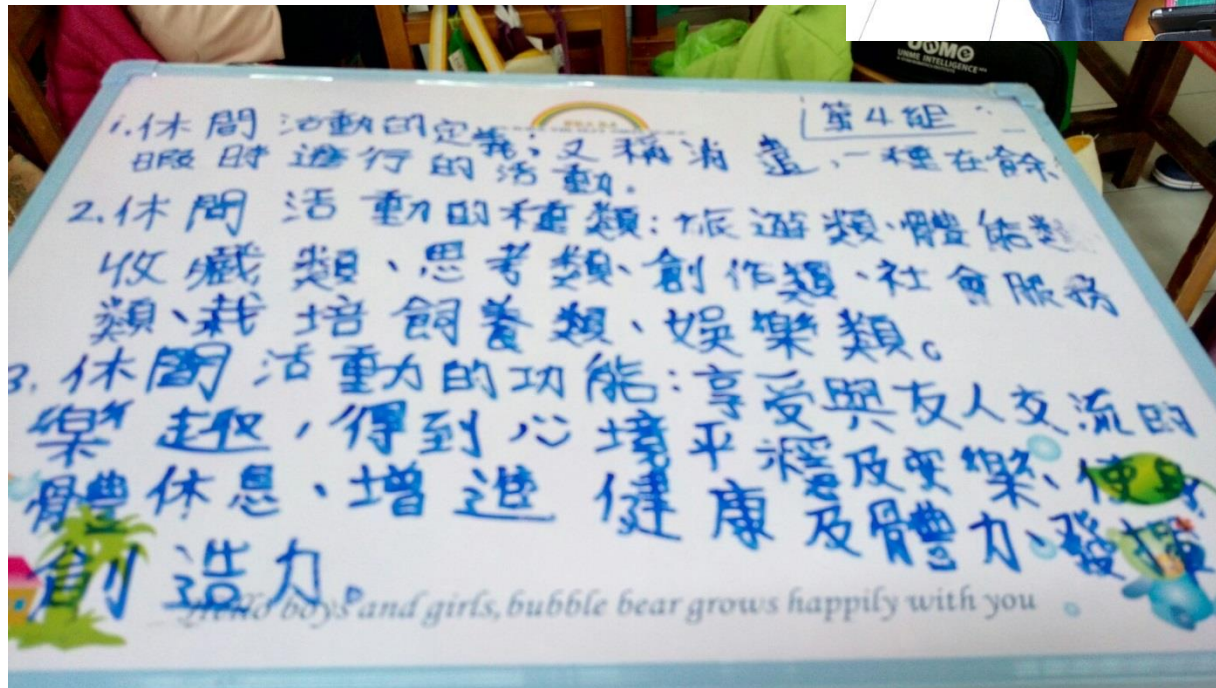 UOMO
UNME INTELLIGENCE
第4組
1.休閒活動的定義:又稱消遣,一種在餘
暇時進行的活動。
2.休閒活動的種類:旅遊類、體能類
收藏類、思考類、創作類、社會服務
類、栽培飼養類、娛樂類。
3.休閒活動的功能:享受與友人交流的
樂趣,得到心境平穩及安樂、使身
體休息、增進健康及體力、發揮
創造力。
Hello boys and girls, bubble bear grows happily with you